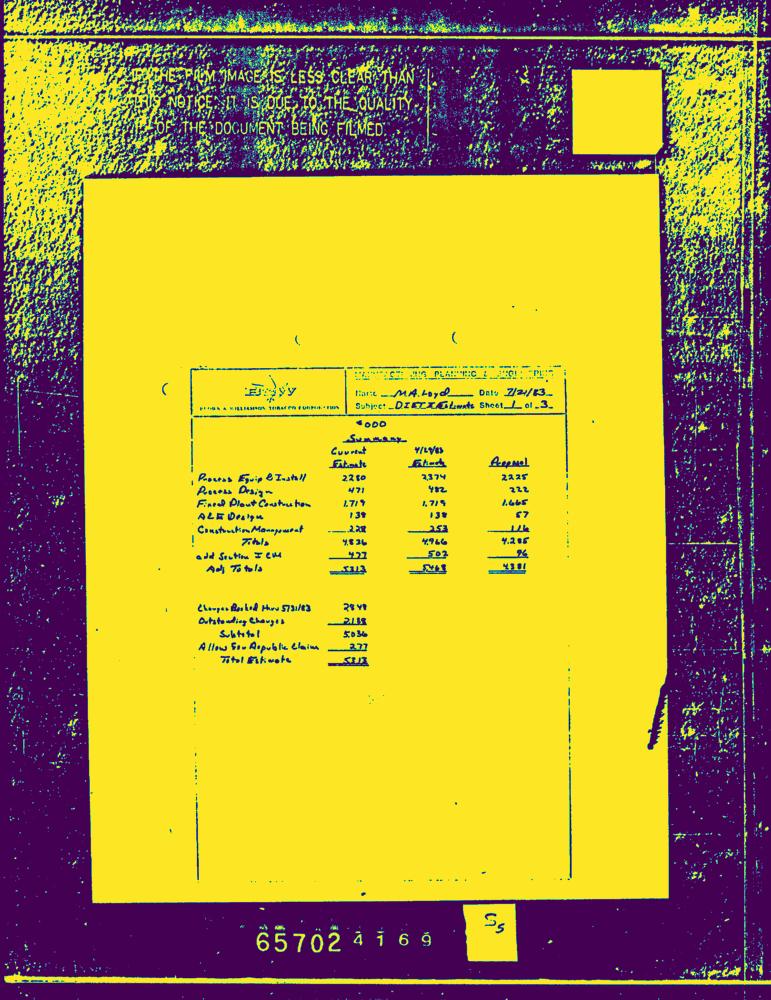 IF THE FILM IMAGE IS LESS CLEAR THAN
THIS NOTICE, IT IS DUE TO THE QUALITY
OF THE DOCUMENT BEING FILMED.
MANUFACTURING PLANNING & ENGINEERING
Name M.A. Loyd Date 7/21/83
BROWN & WILLIAMSON TOBACCO CORPORATION
Subject DIET I Estimate Sheet 1 of 3
$000
Summary
Current 4/29/83
Estimate Estimate Proposal
Process Equip & Install 2280 2374 2225
Process Design 471 482 222
Fixed Plant Construction 1,719 1,719 1,665
A&E Design 138 138 57
Construction Management 228 253 116
Totals 4,836 4,966 4,285
add Section I CM 477 502 96
Adj Totals 5313 5468 4381
Charges Booked thru 5/31/83 2848
Outstanding Charges 2188
Subtotal 5036
Allow For Republic Claim 277
Total Estimate 5313
65702 4169
S5